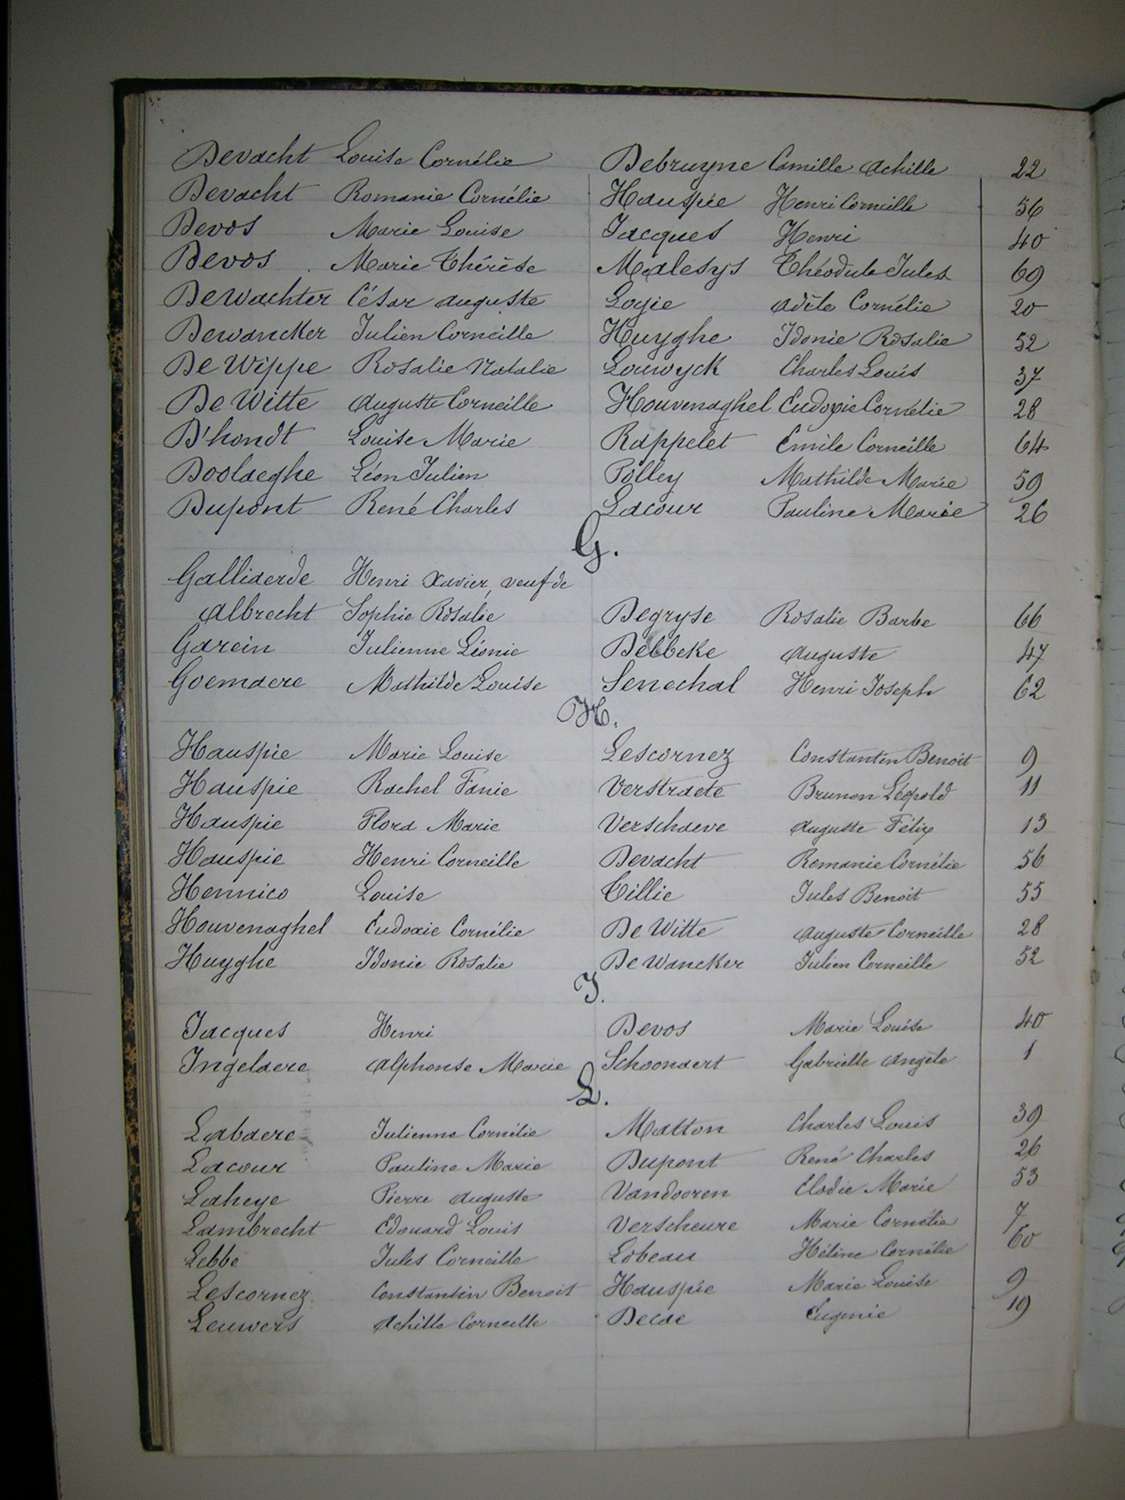 Devacht Louise Cornélie Debruyne Camille Achille 22
Devacht Romanie Cornélie Hauspie Henri Corneille 56
Devos Marie Louise Jacques Henri 40
Devos Marie Thérèse Malesys Théodule Jules 69
DeWachter César Auguste Logie Adèle Cornélie 20
Dewancker Julien Corneille Huyghe Idonie Rosalie 52
De Wippe Rosalie Natalie Louwyck Charles Louis 37
De Witte Auguste Corneille Houvenaghel Eudoxie Cornélie 28
D'hondt Louise Marie Rappelet Emile Corneille 64
Doolaeghe Léon Julien Polley Mathilde Marie 59
Dupont René Charles Lacour Pauline Marie 26
G.
Galliaerde Henri Xavier, veuf de
Albrecht Sophie Rosalie Degryse Rosalie Barbe 66
Garein Julienne Léonie Debbeke Auguste 47
Goemaere Mathilde Louise Senechal Henri Joseph 62
H.
Hauspie Marie Louise Lescornez Constantin Benoit 9
Hauspie Rachel Fanie Verstraete Brunon Léopold 11
Hauspie Flora Marie Verschaeve Auguste Félix 13
Hauspie Henri Corneille Devacht Romanie Cornélie 56
Hennico Louise Tillie Jules Benoit 55
Houvenaghel Eudoxie Cornélie De Witte Auguste Corneille 28
Huyghe Idonie Rosalie De Wancker Julien Corneille 52
J.
Jacques Henri Devos Marie Louise 40
Ingelaere Alphonse Marie Schoonaert Gabrielle Angèle 1
L.
Labaere Julienne Cornélie Matton Charles Louis 39
Lacour Pauline Marie Dupont René Charles 26
Laheye Pierre Auguste Vandooren Elodie Marie 53
Lambrecht Edouard Louis Verscheure Marie Cornélie 7
Lebbe Jules Corneille Lobeau Hélène Cornélie 60
Lescornez Constantin Benoit Hauspie Marie Louise 9
Leuwers Achille Corneille Decae Eugénie 19